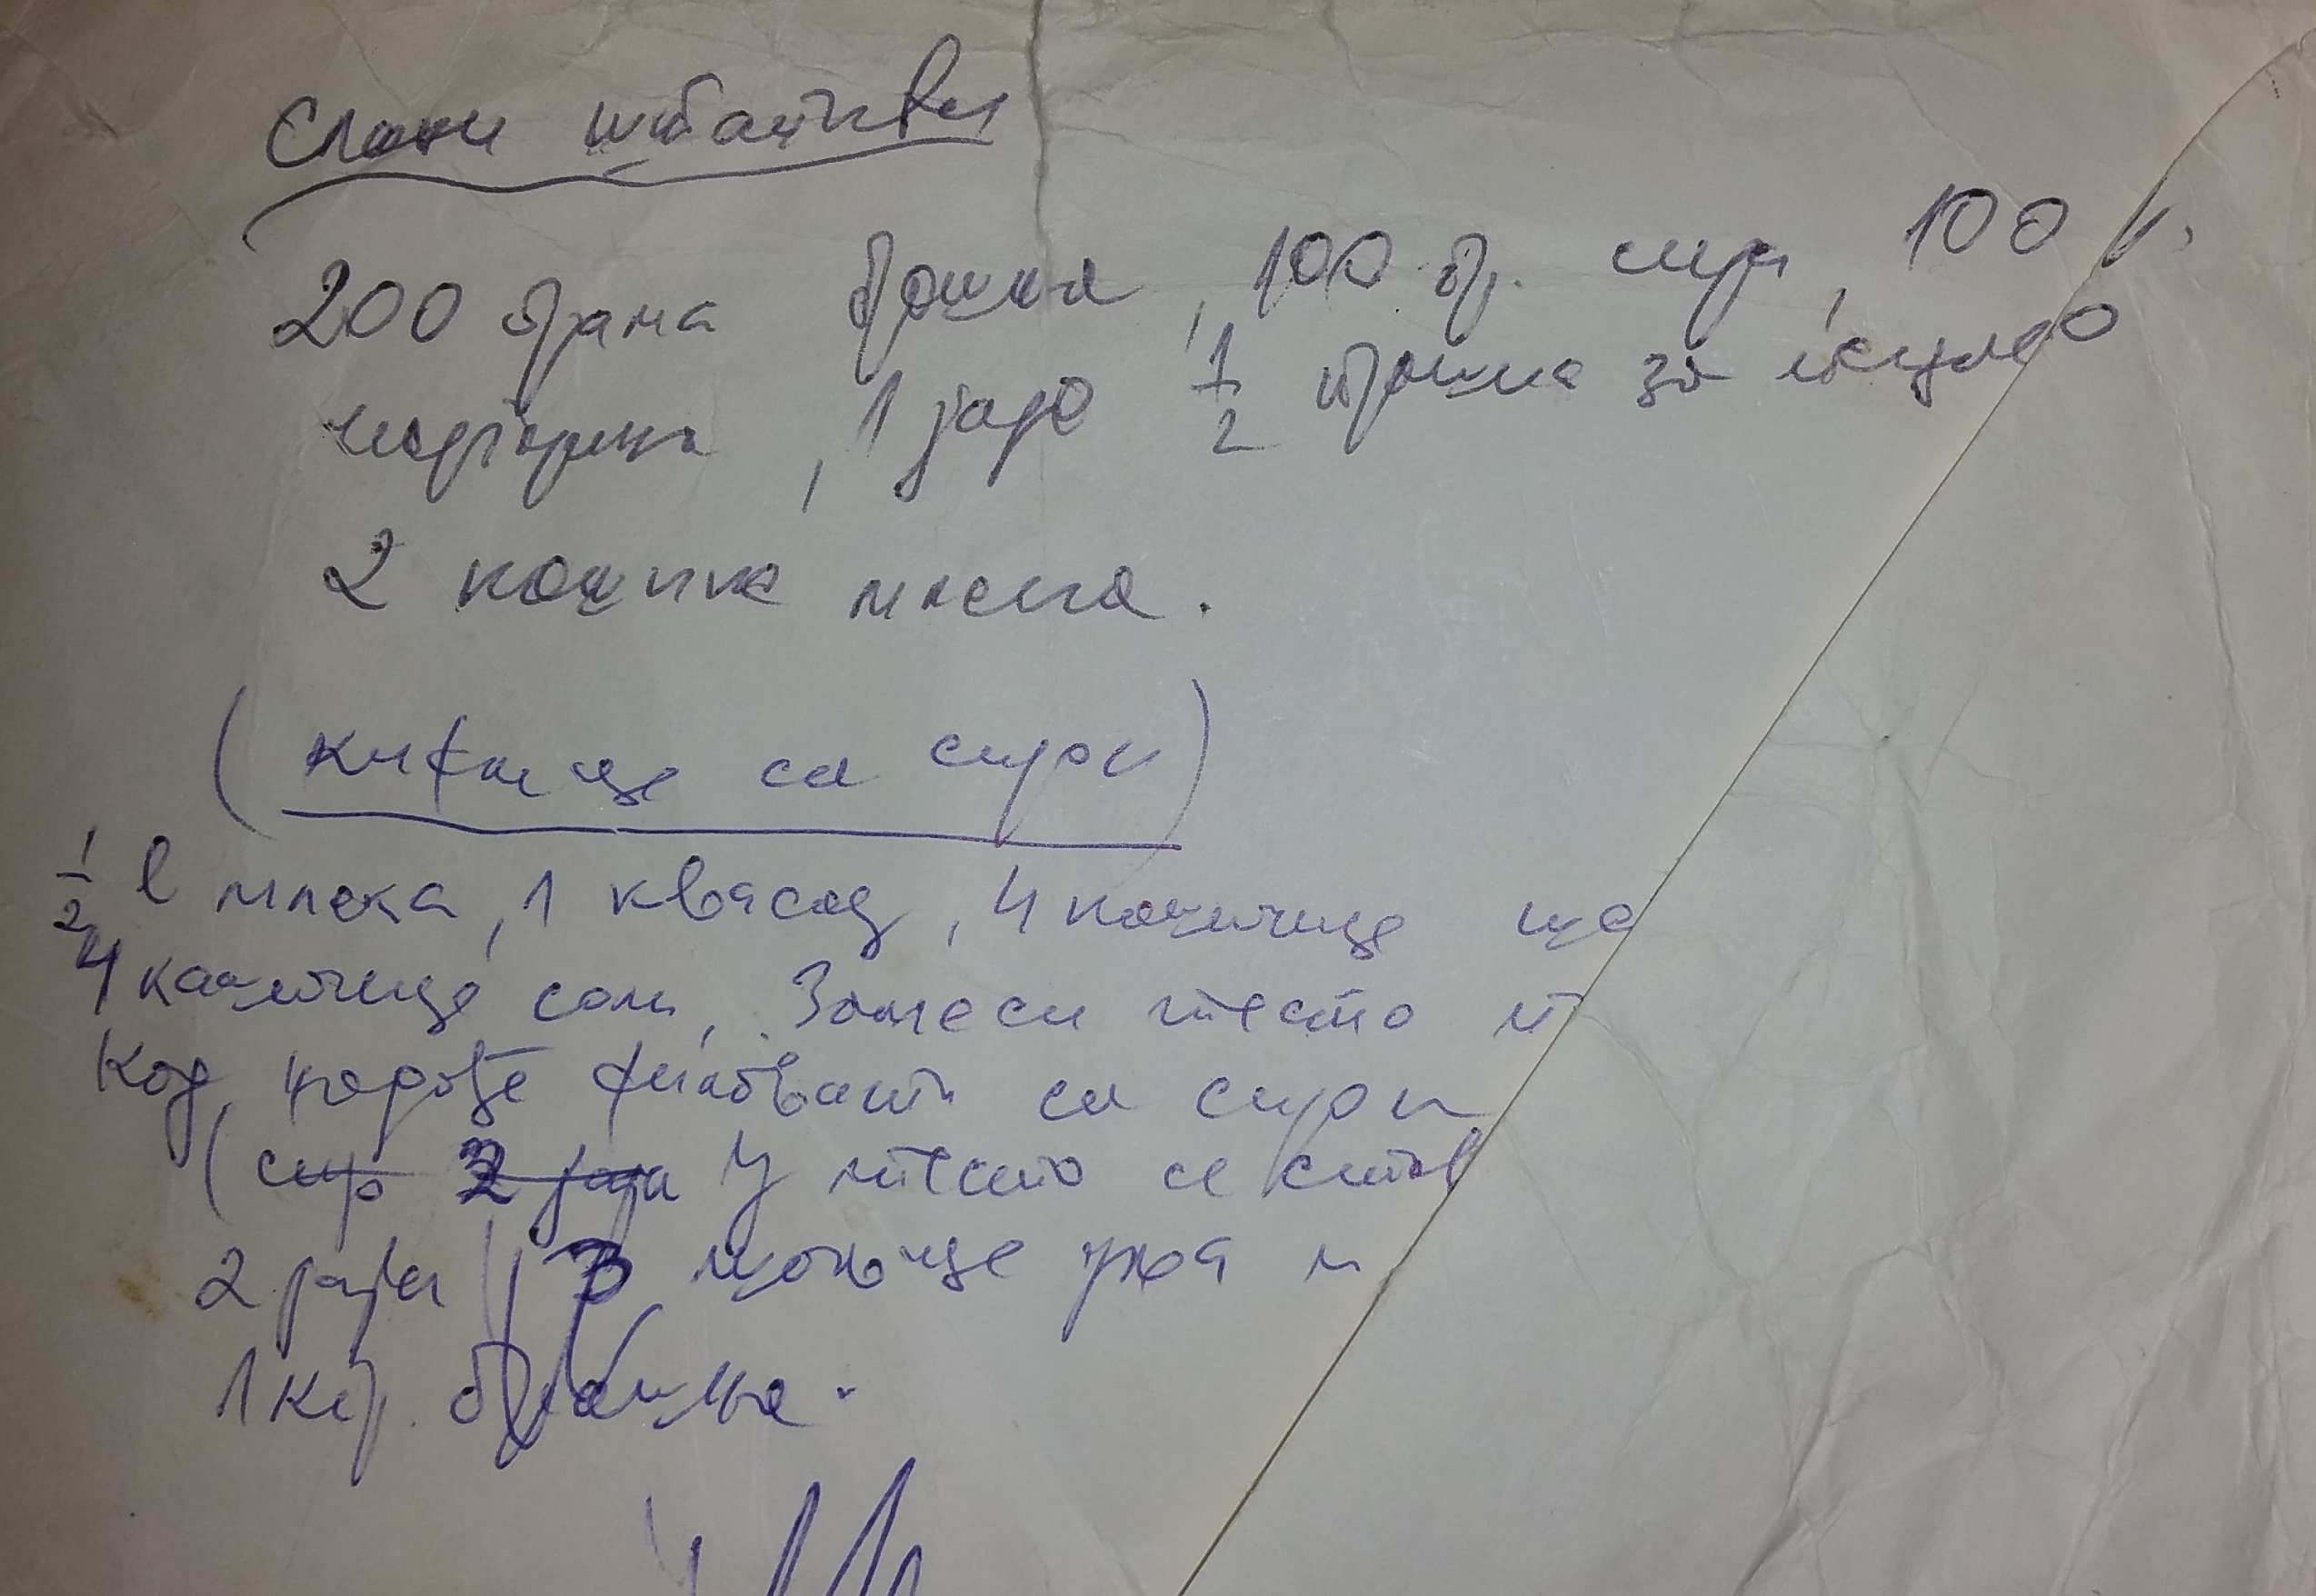 Слани штапићи
200 грама брашна, 100 гр. сира, 100 г.
маргарина, 1 јаје 1/2 прашка за пециво
2 кашике млека.
(кифлице са сиром)
1/2 l млека, 1 квасац, 4 кашичице ше
4 кашичице соли, Замеси тесто и
Код, нарође филовати са сиром
(сир 2 јаја У тесто се став
2 јаја 3 шољице уља и
1 кгр. брашна.